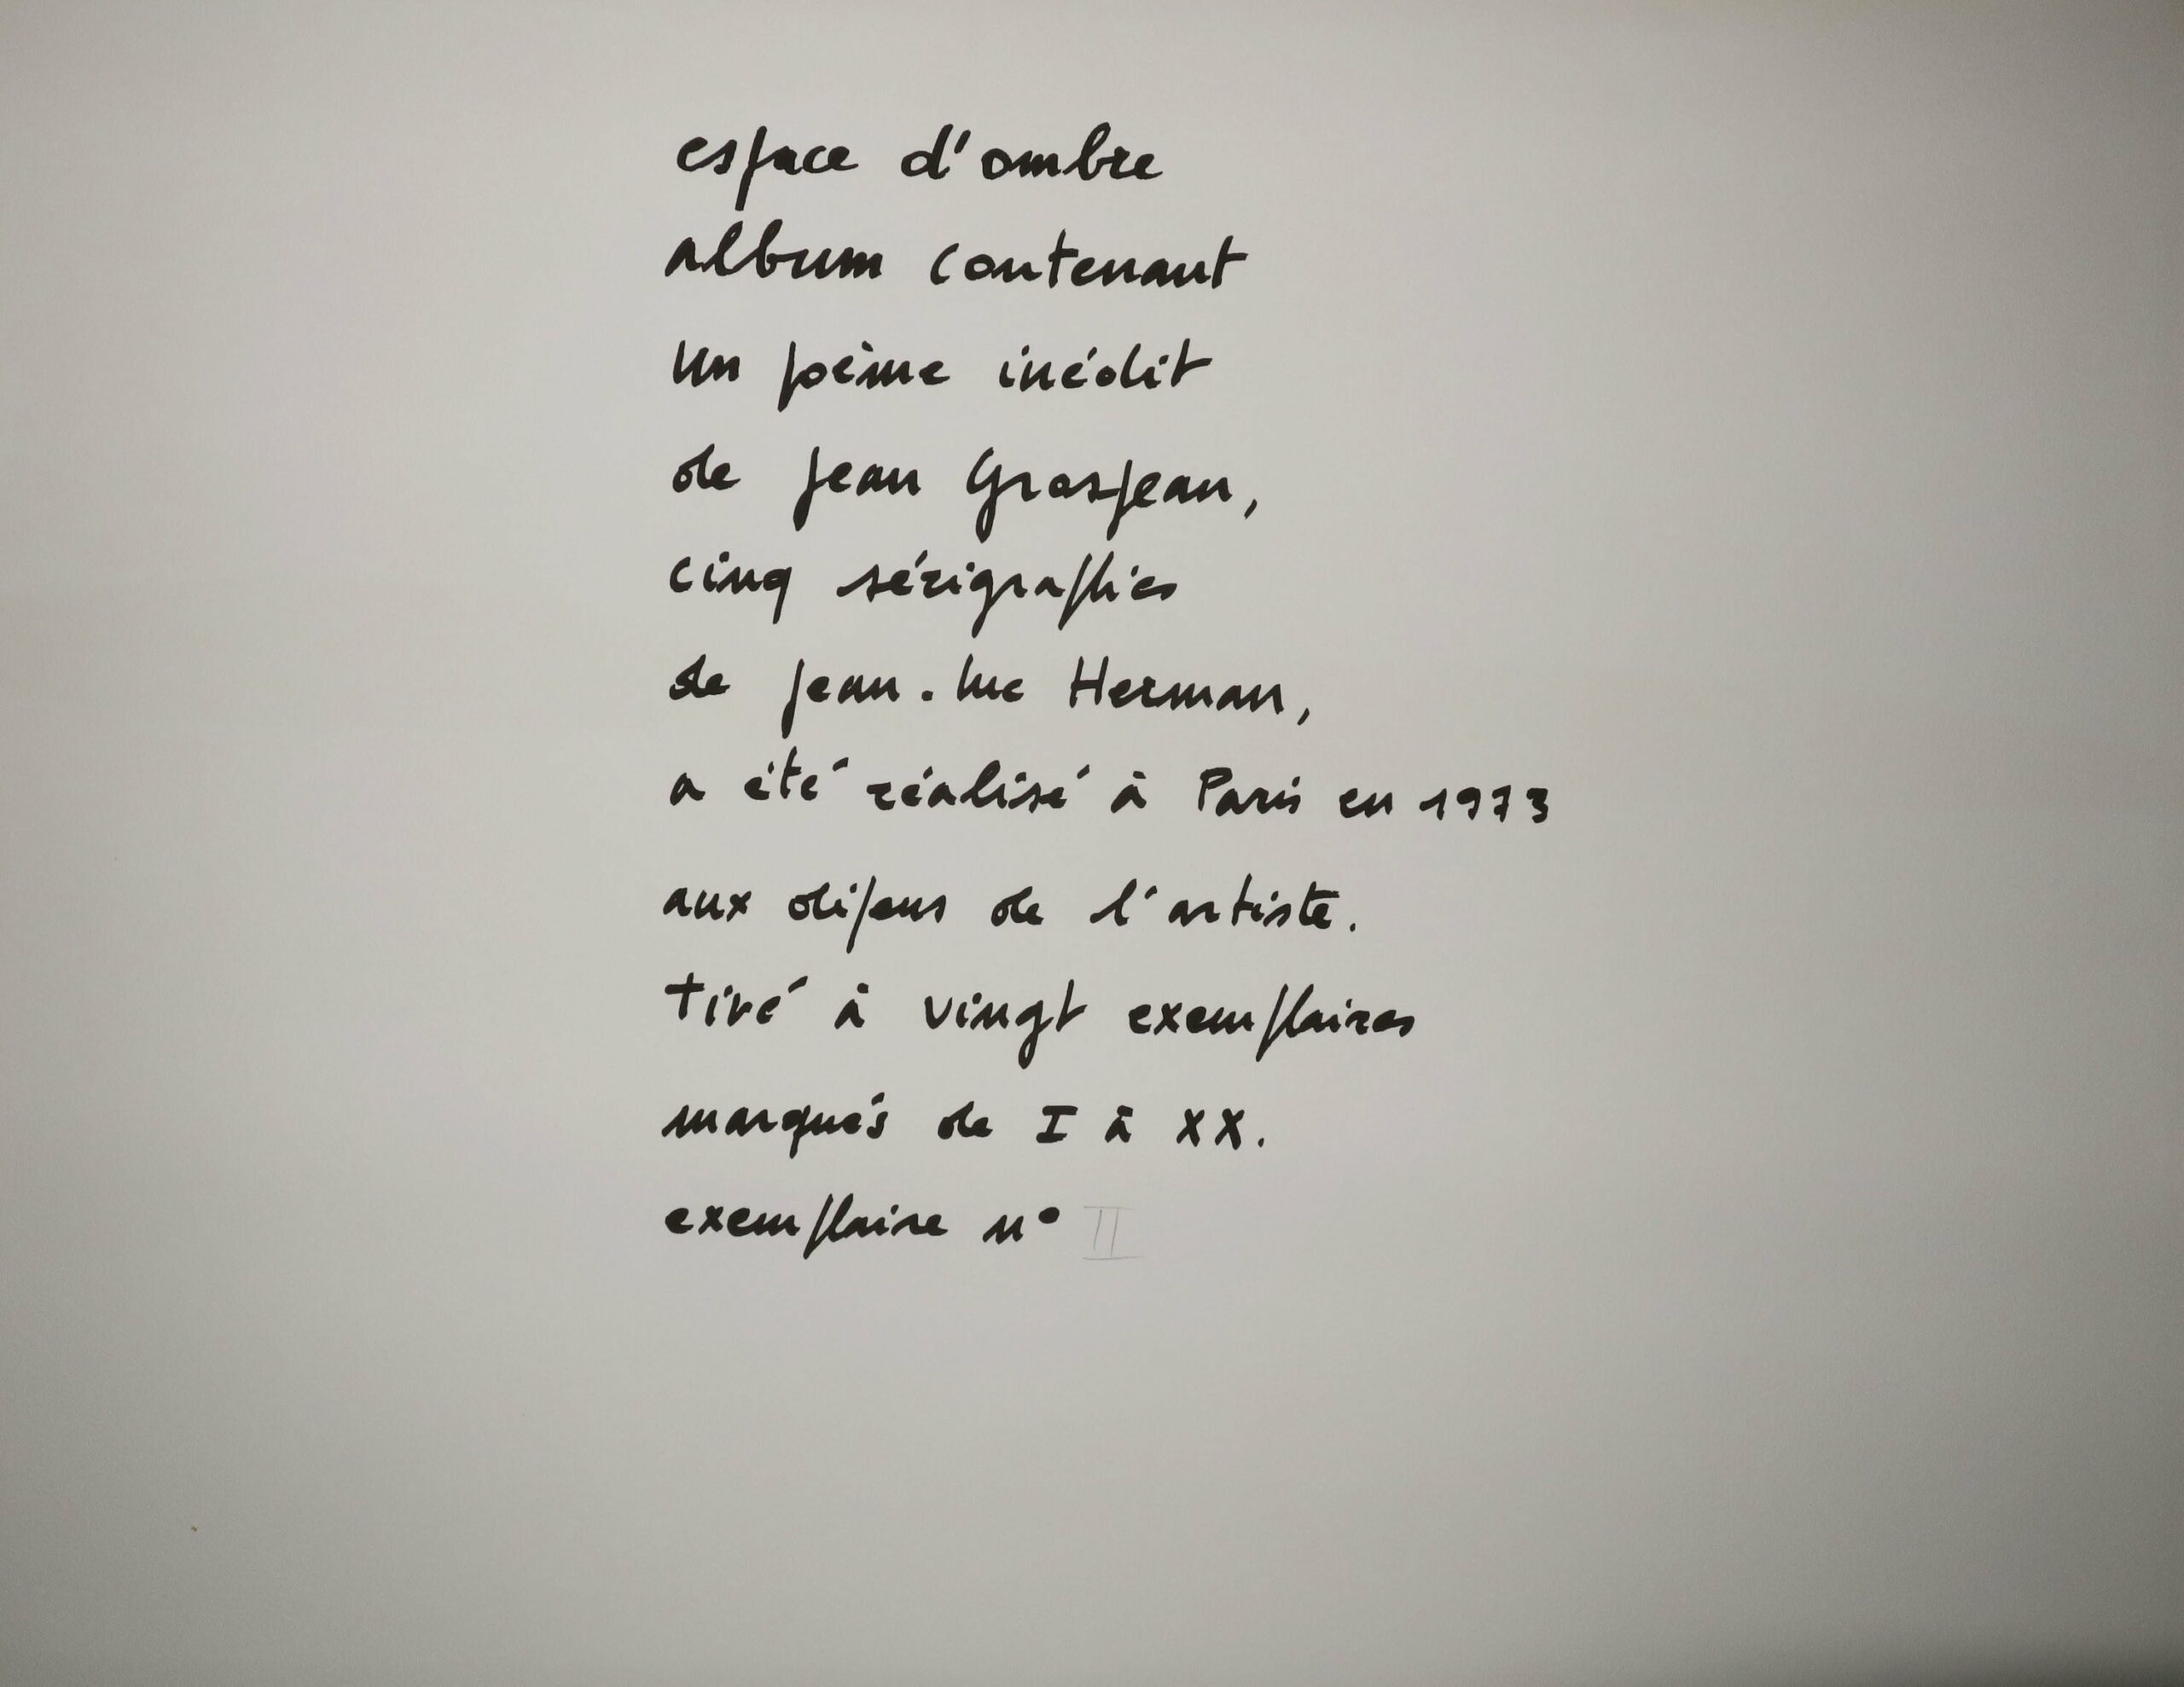 espace d'ombre
album contenant
un poème inédit
de Jean Grosjean,
cinq sérigraphies
de Jean-Luc Herman,
a été réalisé à Paris en 1973
aux dépens de l'artiste.
tiré à vingt exemplaires
marqués de I à XX.
exemplaire n° II